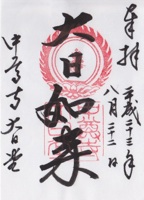 奉拝
平成二十三年
八月二十二日
大日如来
中尊寺大日堂